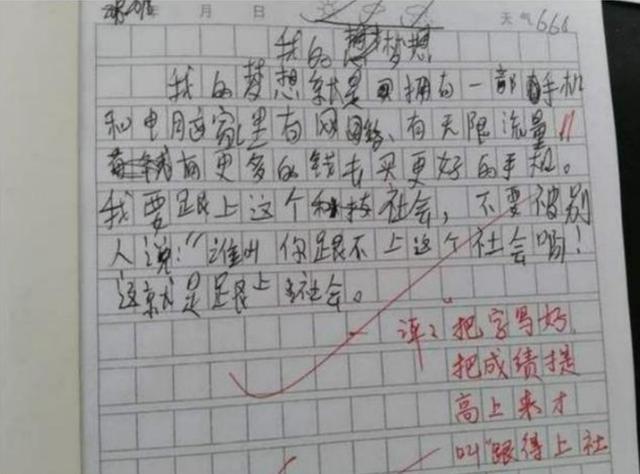 年 月 日 天气666
我的梦想
我的梦想就是拥有一部手机
和电脑这家里有网络、有无限流量
有更多的钱去买更好的手机。
我要跟上这个科技社会，不要被别
人说：“谁叫你跟不上这个社会吗！
这就是跟上社会。
评：把字写好，
把成绩提
高上来才
叫“跟得上社